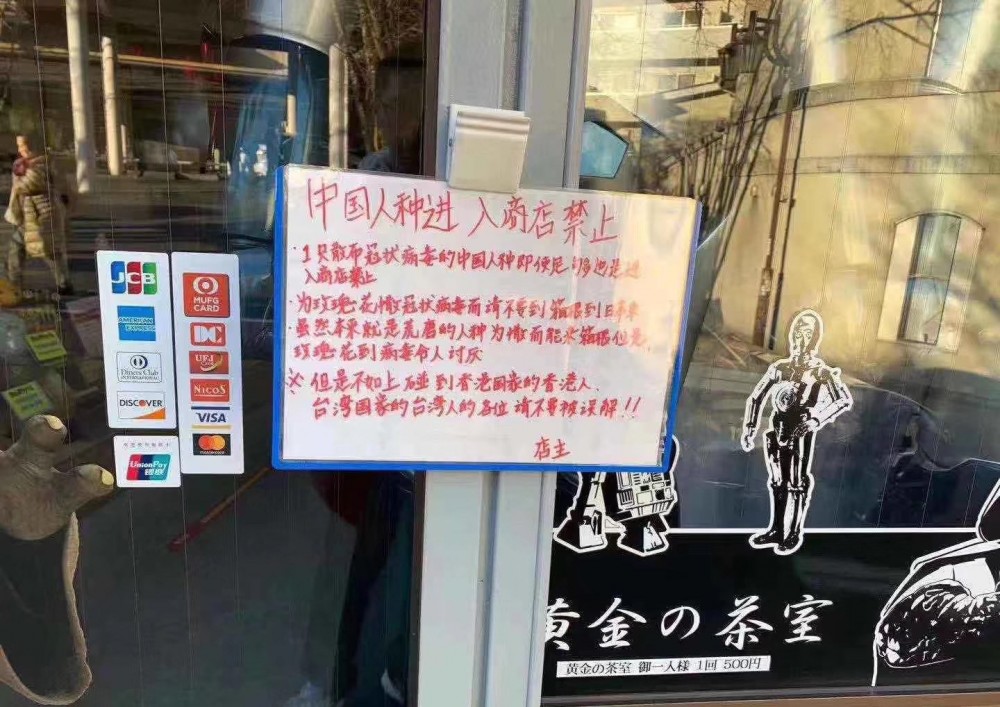 中国人种进入商店禁止
·1只散布冠状病毒的中国人种即使是
入商店禁止
·为玫瑰花撒冠状病毒而请不要到箱根到日本来
·虽然本来就是荒磨的人种为撒而能来箱根但是
玫瑰花到病毒令人讨厌
※但是不如上碰到香港国家的香港人、
台湾国家的台湾人的各位请不要被误解!!
店主
JCB
AMERICAN EXPRESS
Diners Club
INTERNATIONAL
DISCOVER
UnionPay
银联
MUFG
CARD
DC
UFJ
NICOS
VISA
mastercard
黄金の茶室
黄金の茶室 御一人様 1回 500円